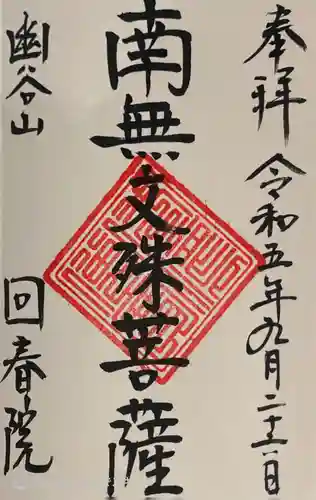 奉拝 令和五年九月二十二日
南無文殊菩薩
幽谷山
回春院